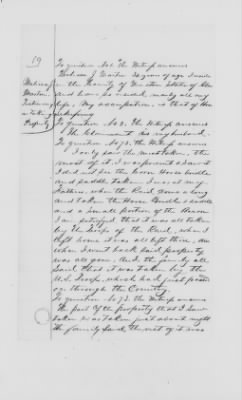 19
To question No 1 the Witness answers
Age 20 years of age I reside
in the County of Winston State of Ala
and have so resided nearly all my
life, My occupation, is that of House
keeping
To question No 2. the Witness answers
The Claimant is my husband.
To question No 73. the Witness answers
most of it. I was present & saw it
I did not see the
and saddle taken I was at my
Fathers, when the Raid came along
and taken the Horse Bridle & saddle
and a small portion of the Bacon.
I am satisfied that it was all taken
by the Troops of the Raid, when I
left home it was all left there, and
when I went back said property
was all gone, And the family all
said that it was taken by the
U.S. Troops, which had just passed
on through the Country.
To question No 73. the Witness answers
The part of the property that I saw
taken was taken just about night
the family said the rest of it was
Taking
Property